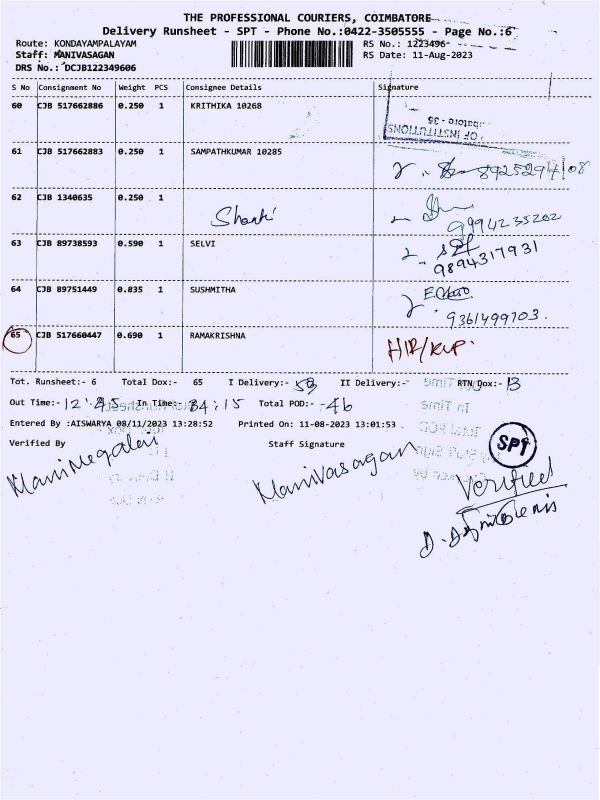 THE PROFESSIONAL COURIERS, COIMBATORE
Delivery Runsheet - SPT - Phone No.:0422-3505555 - Page No.:6
Route: KONDAYAMPALAYAM RS No.: 1223496-
Staff: MANIVASAGAN RS Date: 11-Aug-2023
DRS No.: DCJB122349606
S No Consignment No Weight PCS Consignee Details Signature
60 CJB 517662886 0.250 1 KRITHIKA 10268
OF INSTITUTIONS
61 CJB 517662883 0.250 1 SAMPATHKUMAR 10285
8925294108
62 CJB 1340635 0.250 1
9994235202
63 CJB 89738593 0.590 1 SELVI
9894317931
64 CJB 89751449 0.835 1 SUSHMITHA
9361499703.
65 CJB 517660447 0.690 1 RAMAKRISHNA
Tot. Runsheet:- 6 Total Dox:- 65 I Delivery:- II Delivery:- RTN Dox:- 13
Out Time:- 12:45 In Time:- Total POD:- 46
Entered By :AISWARYA 08/11/2023 13:28:52 Printed On: 11-08-2023 13:01:53
Verified By Staff Signature
Manimegalai Manivasagan
SPT
Verified